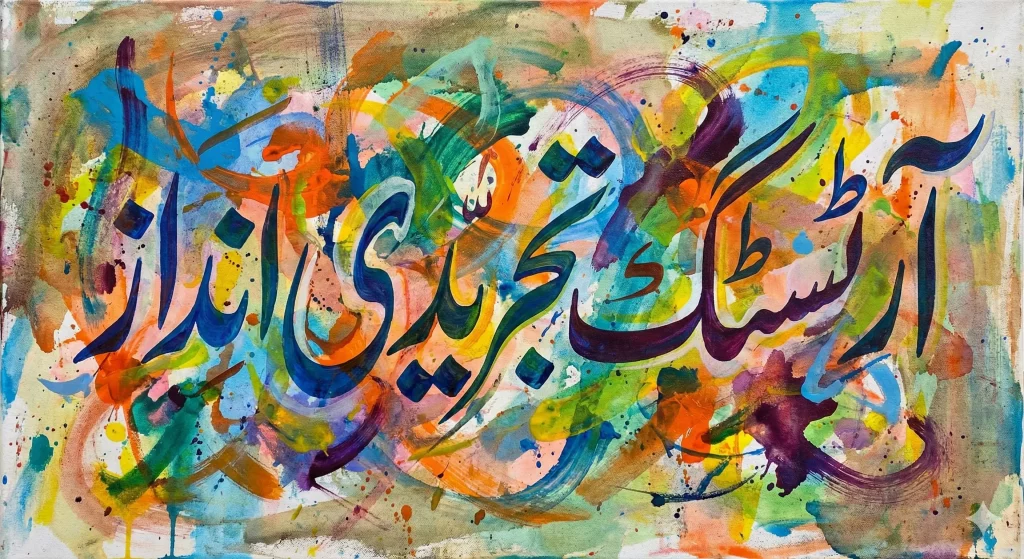 آرٹسٹک تجریدی انداز